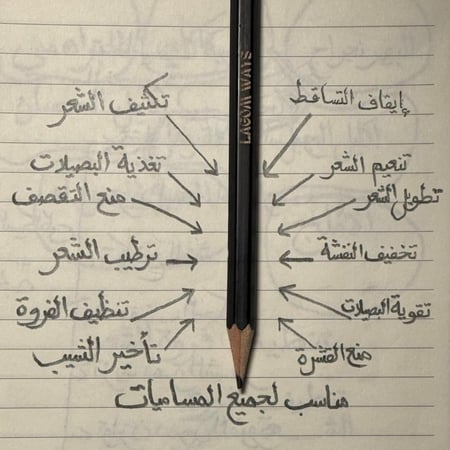 إيقاف التساقط
تكثيف الشعر
تنعيم الشعر
تغذية البصيلات
تطويل الشعر
منع التقصف
تخفيف النفشة
ترطيب الشعر
تقوية البصيلات
تنظيف الفروة
منع القشرة
تأخير الشيب
مناسب لجميع المساميات
LAGOM WAYS